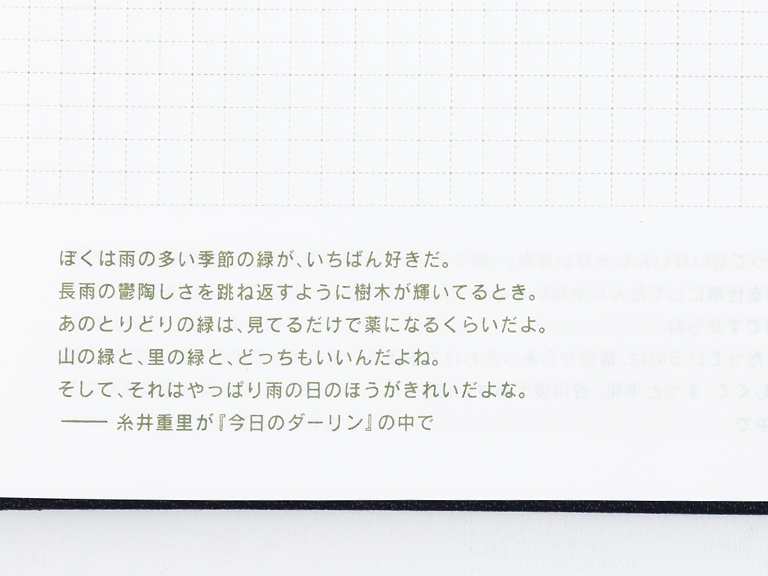 ぼくは雨の多い季節の緑が、いちばん好きだ。
長雨の鬱陶しさを跳ね返すように樹木が輝いてるとき。
あのとりどりの緑は、見てるだけで薬になるくらいだよ。
山の緑と、里の緑と、どっちもいいんだよね。
そして、それはやっぱり雨の日のほうがきれいだよな。
—— 糸井重里が『今日のダーリン』の中で